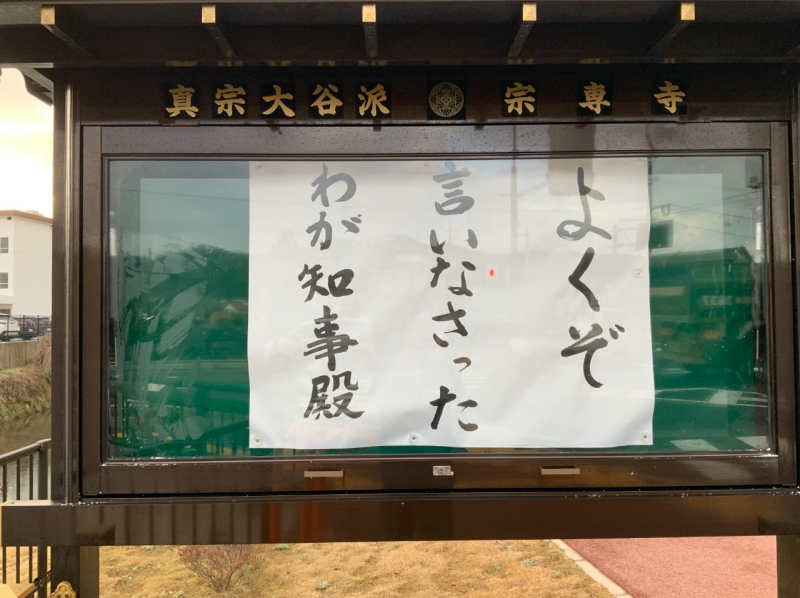 真宗大谷派 宗専寺
よくぞ
言いなさった
わが知事殿